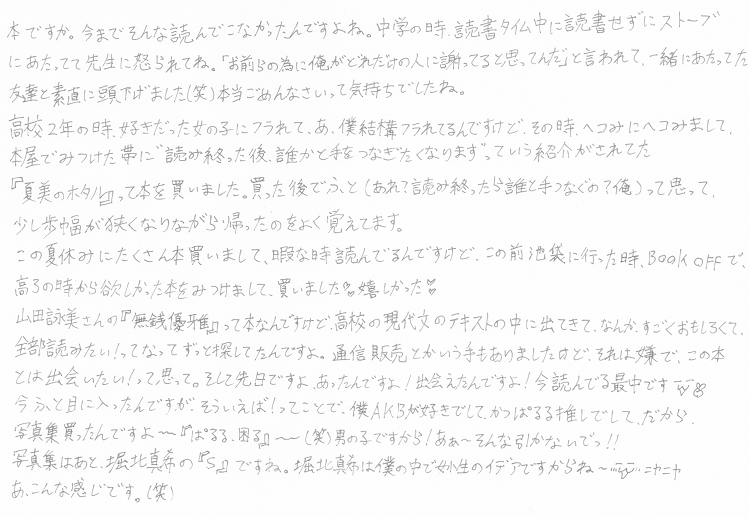 本ですか。今までそんな読んでこなかったんですよね。中学の時、読書タイム中に読書せずにストーブ
にあたってて先生に怒られてね。「お前らの為に俺がどれだけの人に謝ってると思ってんだ」と言われて、一緒にあたってた
友達と素直に頭下げました(笑)本当ごめんなさいって気持ちでしたね。
高校2年の時、好きだった女の子にフラれて、あ、僕結構フラれてるんですけど、その時、ヘコみにヘコみまして、
本屋でみつけた帯に"読み終った後、誰かと手をつなぎたくなります"っていう紹介がされてた
『夏美のホタル』って本を買いました。買った後でふと(あれ?読み終ったら誰と手つなぐの?俺)って思って、
少し歩幅が狭くなりながら帰ったのをよく覚えてます。
この夏休みにたくさん本買いまして、暇な時読んでるんですけど、この前池袋に行った時、BOOK OFFで、
高3の時から欲しかった本をみつけまして、買いました♡嬉しかった♡
山田詠美さんの『無銭優雅』って本なんですけど、高校の現代文のテキストの中に出てきて、なんか、すごくおもしろくて、
全部読みたい!ってなってずっと探してたんですよ。通信販売とかいう手もありましたけど、それは嫌で、この本
とは出会いたい!って思って。そして先日ですよ、あったんですよ!出会えたんですよ!今読んでる最中です
今ふと目に入ったんですが、そういえば!ってことで、僕AKBが好きでして、かつぱるる推しでして、だから、
写真集買ったんですよ〜『ぱるる、困る』〜(笑)男の子ですから!あぁ〜そんな引かないでっ!!
写真集はあと、堀北真希の『S』ですね。堀北真希は僕の中で妙生のイデアですからね〜ニヤニヤ
あ、こんな感じです。(笑)